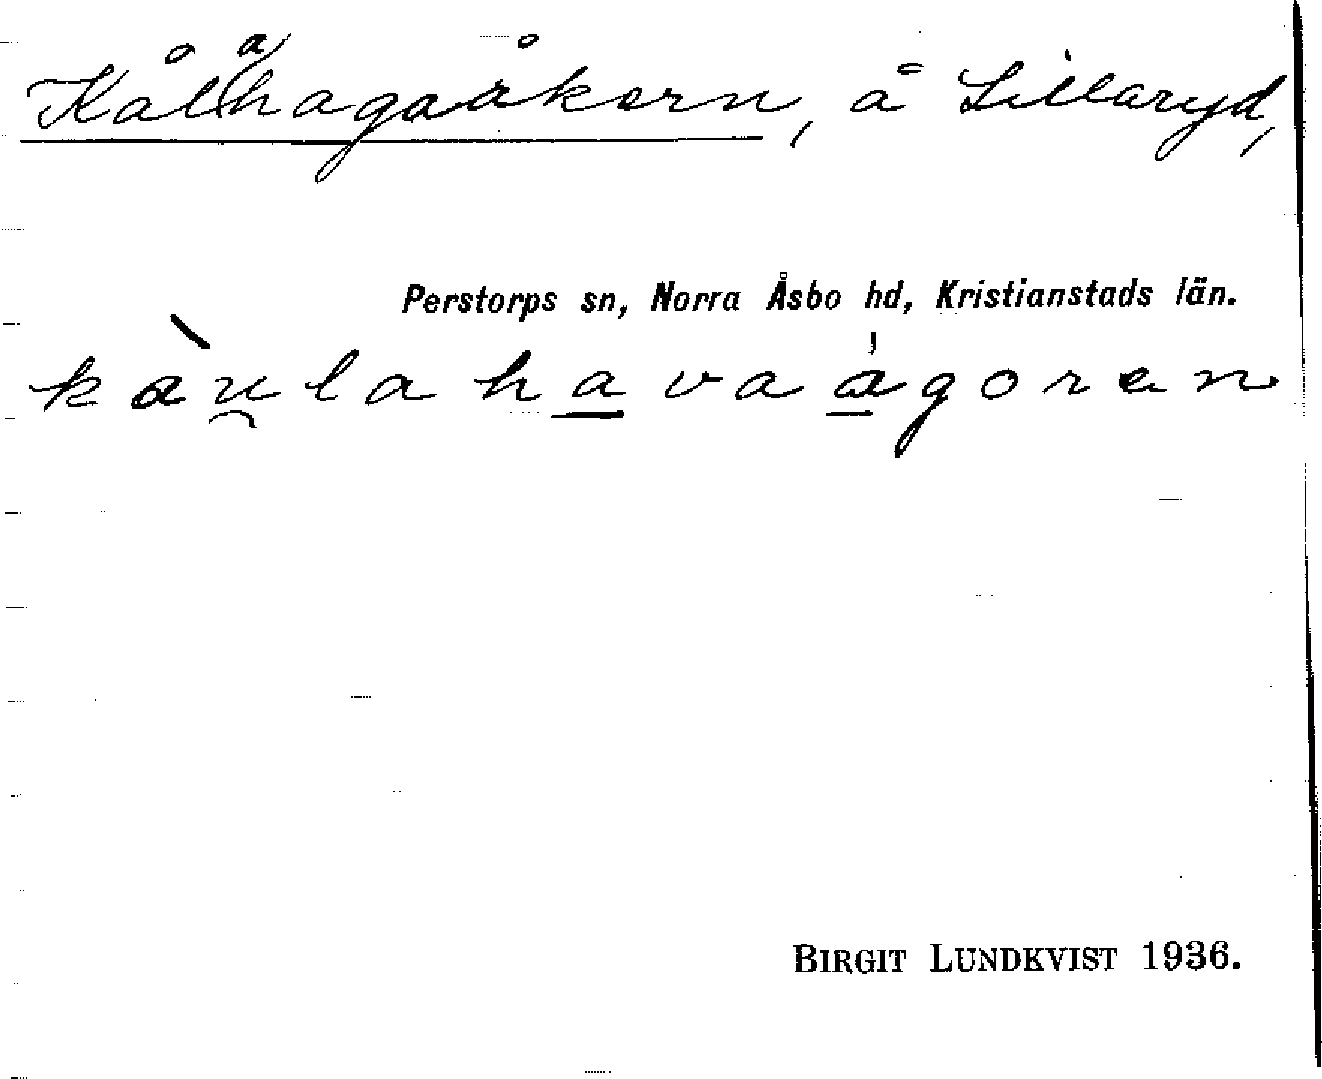 Kålahagaåkern, å Lillaryd,
Perstorps sn, Norra Åsbo hd, Kristianstads län.
kàu̯lahava̲a̲̍goran
BIRGIT LUNDKVIST 1936.